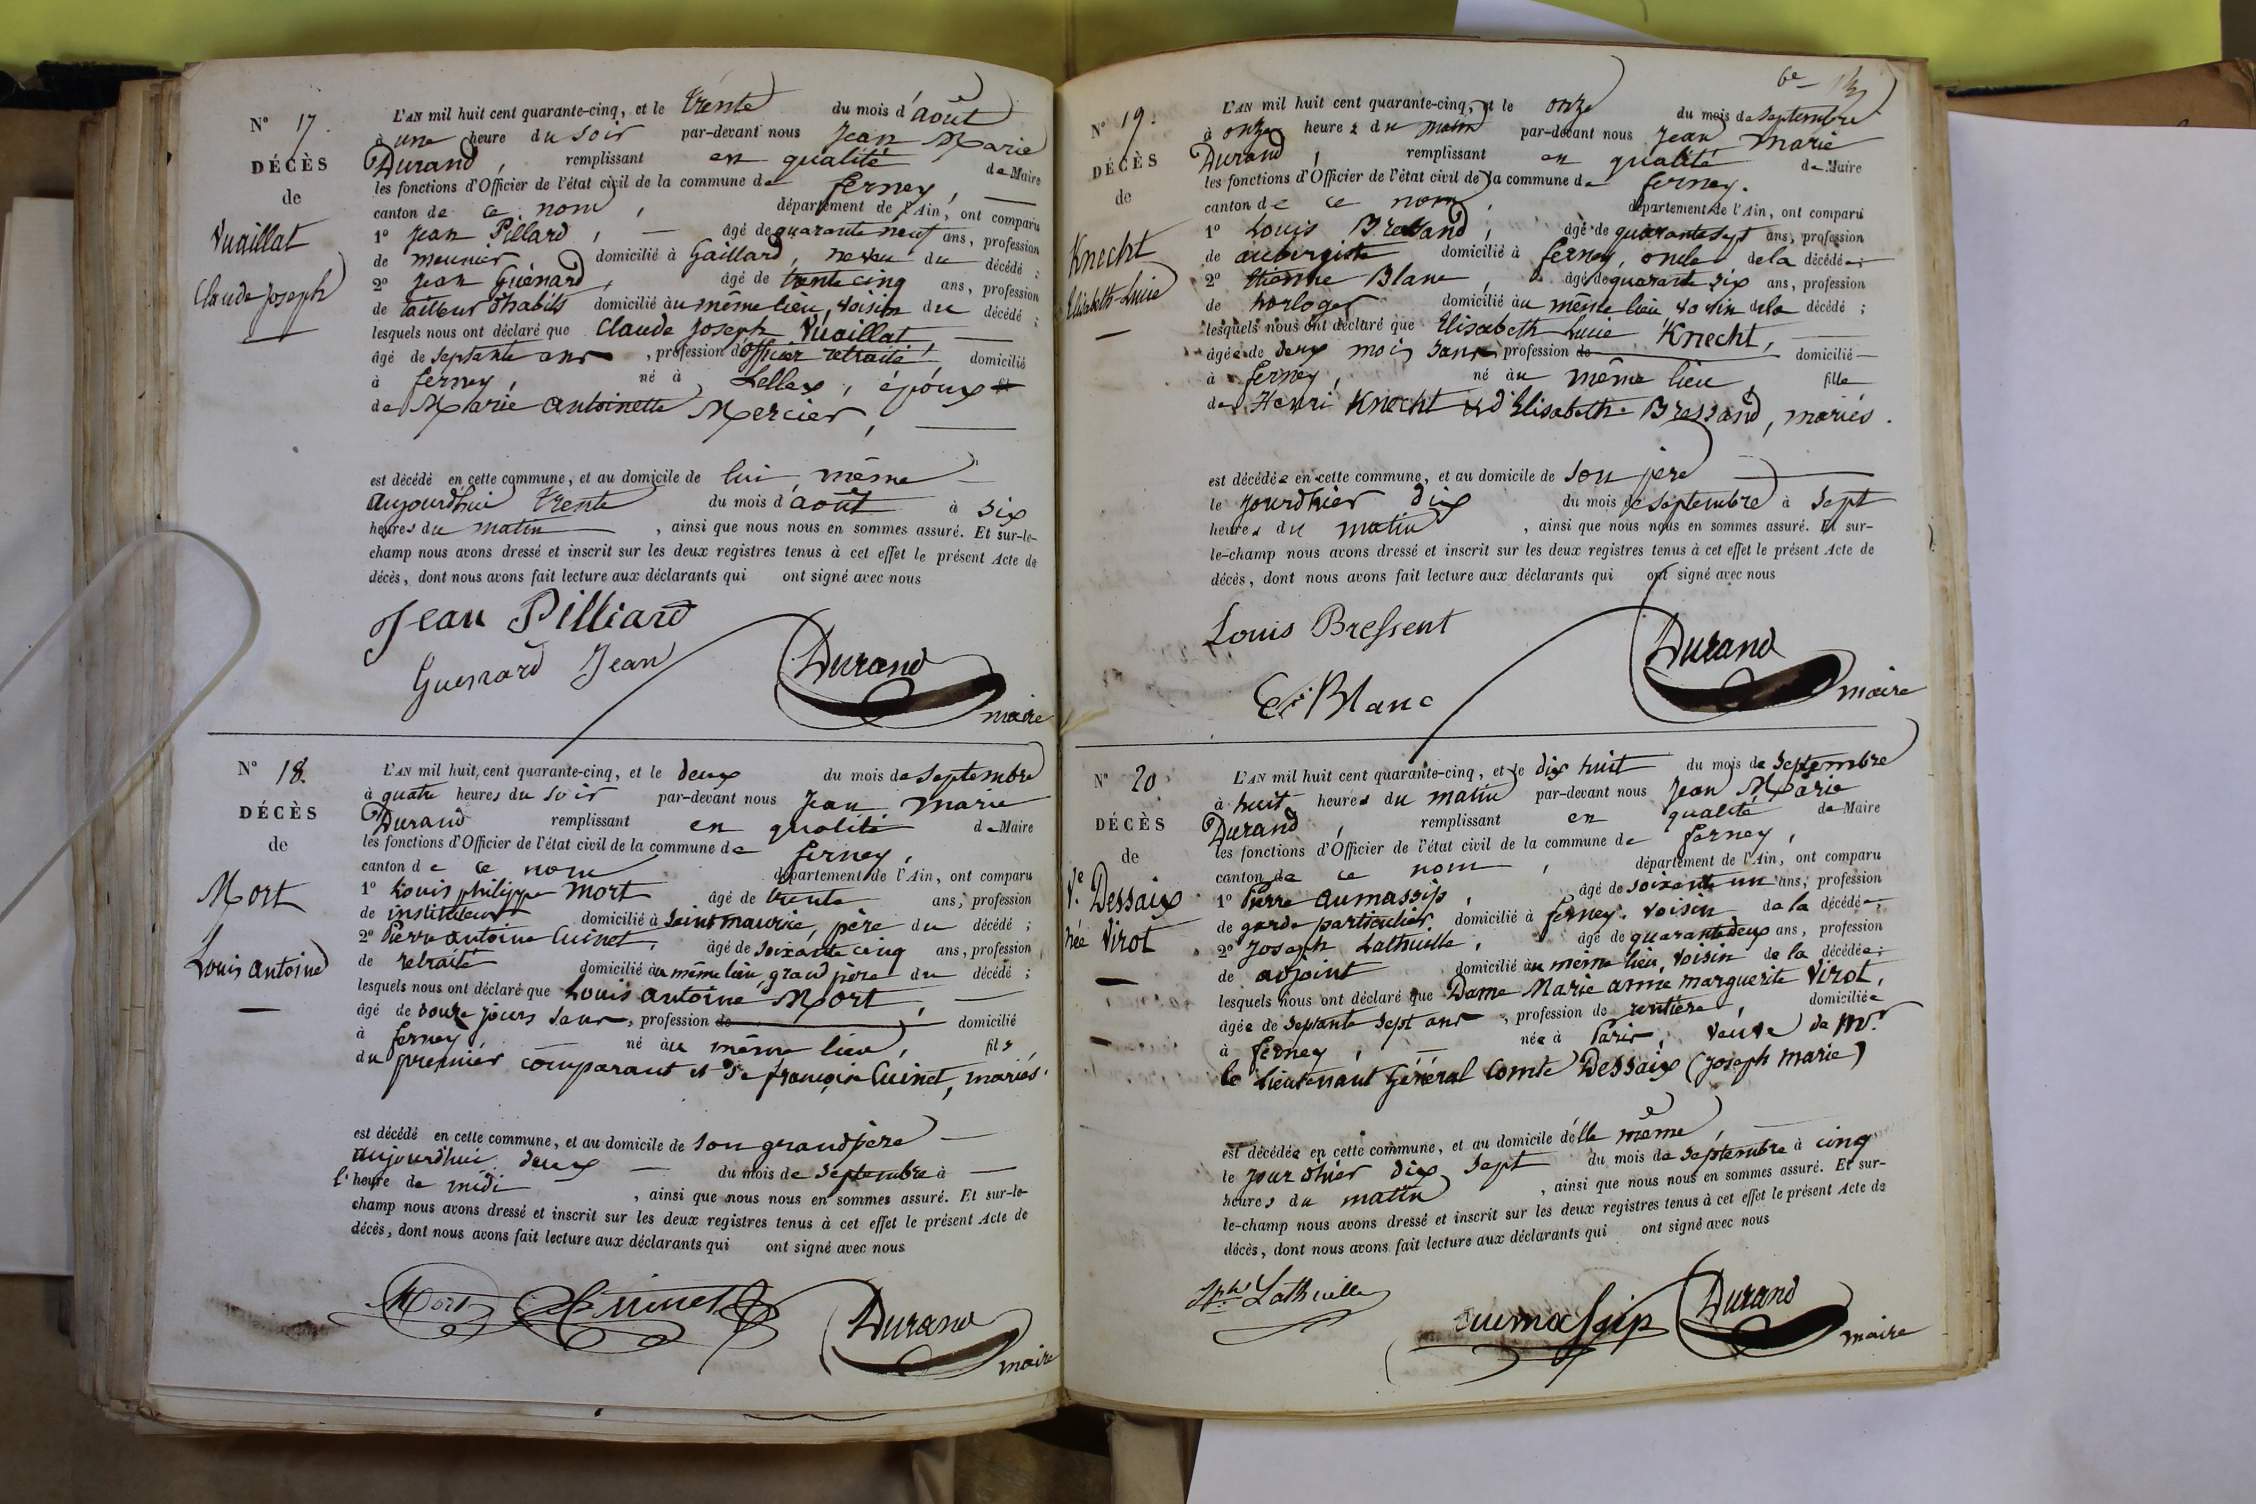 N° 17.
DÉCÈS
de
Vuaillat
Claude Joseph
L'AN mil huit cent quarante-cinq, et le trente du mois d'août
à une heure du soir par-devant nous Jean Marie
Durand, remplissant en qualité de Maire
les fonctions d'Officier de l'état civil de la commune de ferney,
canton de ce nom, département de l'Ain, ont comparu
1° Jean Pillard, âgé de quarante neuf ans, profession
de meunier, domicilié à Gaillard, neveu du décédé ;
2° Jean Guénard, âgé de trente cinq ans, profession
de tailleur d'habits domicilié au même lieu, voisin du décédé ;
lesquels nous ont déclaré que Claude Joseph Vuaillat
âgé de septante ans, profession d'officier retraité, domicilié
à ferney, né à Lellex, époux
de Marie antoinette Mercier,
est décédé en cette commune, et au domicile de lui même
aujourd'hui trente du mois d'août à six
heures du matin, ainsi que nous nous en sommes assuré. Et sur-le-
champ nous avons dressé et inscrit sur les deux registres tenus à cet effet le présent Acte de
décès, dont nous avons fait lecture aux déclarants qui ont signé avec nous
Jean Pilliard
Guenard Jean
Durand
maire
N° 18.
DÉCÈS
de
Mort
Louis antoine
L'AN mil huit cent quarante-cinq, et le deux du mois de septembre
à quatre heures du soir par-devant nous Jean marie
Durand remplissant en qualité de Maire
les fonctions d'Officier de l'état civil de la commune de ferney,
canton de ce nom département de l'Ain, ont comparu
1° Louis philippe Mort âgé de trente ans, profession
de instituteur domicilié à Saint maurice, père du décédé ;
2° Pierre antoine Cuinet, âgé de soixante cinq ans, profession
de retraité domicilié au même lieu, grand père du décédé ;
lesquels nous ont déclaré que Louis antoine Mort,
âgé de douze jours sans, profession de domicilié
à ferney né au même lieu, fils
du premier comparant et de françoise Cuinet, mariés
est décédé en cette commune, et au domicile de son grand père
aujourd'hui deux du mois de septembre à
l'heure de midi, ainsi que nous nous en sommes assuré. Et sur-le-
champ nous avons dressé et inscrit sur les deux registres tenus à cet effet le présent Acte de
décès, dont nous avons fait lecture aux déclarants qui ont signé avec nous
Mort Cuinet
Durand
maire
6e
N° 19.
DÉCÈS
de
Knecht
Elisabeth-Lucie
L'AN mil huit cent quarante-cinq, et le onze du mois de septembre
à onze heures du matin par-devant nous Jean Marie
Durand, remplissant en qualité de Maire
les fonctions d'Officier de l'état civil de la commune de ferney.
canton de ce nom, département de l'Ain, ont comparu
1° Louis Bressand, âgé de quarante sept ans, profession
de aubergiste domicilié à ferney, oncle de la décédée ;
2° Etienne Blanc, âgé de quarante six ans, profession
de horloger domicilié au même lieu voisin de la décédé ;
lesquels nous ont déclaré que Elisabeth Lucie Knecht,
âgée de deux mois sans profession de domicilié
à ferney, né au même lieu, fille
de Henri Knecht et d'Elisabeth Bressand, mariés.
est décédée en cette commune, et au domicile de son père
le jourd'hier dix du mois de septembre à sept
heures du matin, ainsi que nous nous en sommes assuré. Et sur-
le-champ nous avons dressé et inscrit sur les deux registres tenus à cet effet le présent Acte de
décès, dont nous avons fait lecture aux déclarants qui ont signé avec nous
Louis Bressent
Et Blanc
Durand
maire
N° 20
DÉCÈS
de
Ve Dessaix
née Virot
L'AN mil huit cent quarante-cinq, et le dix huit du mois de septembre
à huit heures du matin par-devant nous Jean Marie
Durand, remplissant en qualité de Maire
les fonctions d'Officier de l'état civil de la commune de ferney,
canton de ce nom, département de l'Ain, ont comparu
1° Pierre aumassip, âgé de soixante un ans, profession
de garde particulier, domicilié à ferney. voisin de la décédée ;
2° Joseph Lathuille, âgé de quarante deux ans, profession
de adjoint domicilié au même lieu, voisin de la décédée ;
lesquels nous ont déclaré que Dame Marie anne marguerite Virot,
âgée de septante sept ans, profession de rentière, domiciliée
à ferney, née à Paris, veuve de Mr
le lieutenant Général Comte Dessaix (Joseph Marie)
est décédée en cette commune, et au domicile d'elle même,
le jour d'hier dix sept du mois de septembre à cinq
heures du matin, ainsi que nous nous en sommes assuré. Et sur-
le-champ nous avons dressé et inscrit sur les deux registres tenus à cet effet le présent Acte de
décès, dont nous avons fait lecture aux déclarants qui ont signé avec nous
Jph Lathuille
aumassip
Durand
maire